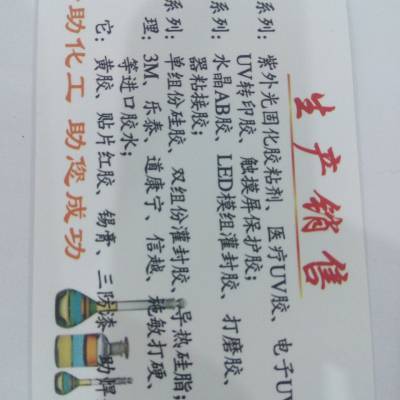 生产销售
系列：紫外光固化胶粘剂、医疗UV胶、电子UV
UV转印胶、触摸屏保护胶；
系列：水晶AB胶、LED模组灌封胶、打磨胶、
器粘接胶；
系列：单组份硅胶、双组份灌封胶、导热硅脂；
理：3M、乐泰、道康宁、信越、施敏打硬、
等进口胶水；
它：黄胶、贴片红胶、锡膏、三防漆、助焊
助化工 助您成功